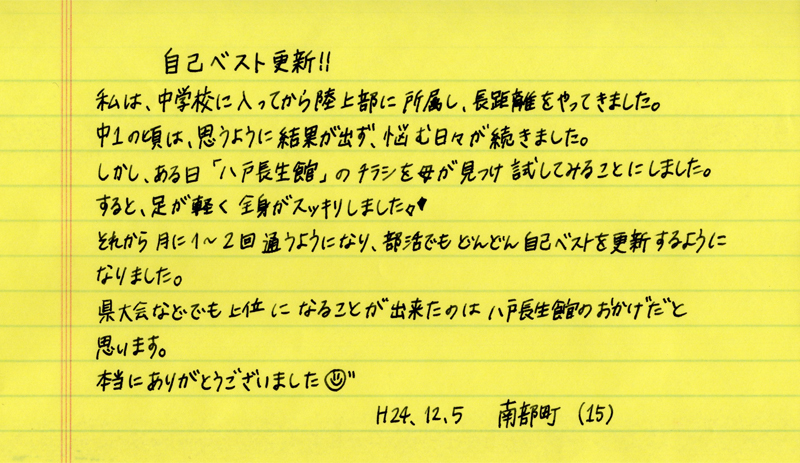 自己ベスト更新!!
私は、中学校に入ってから陸上部に所属し、長距離をやってきました。
中1の頃は、思うように結果が出ず、悩む日々が続きました。
しかし、ある日「八戸長生館」のチラシを母が見つけ試してみることにしました。
すると、足が軽く全身がスッキリしました
それから月に1～2回通うようになり、部活でもどんどん自己ベストを更新するように
なりました。
県大会などでも上位になることが出来たのは八戸長生館のおかげだと
思います。
本当にありがとうございました☺"
H24.12.5 南部町 (15)